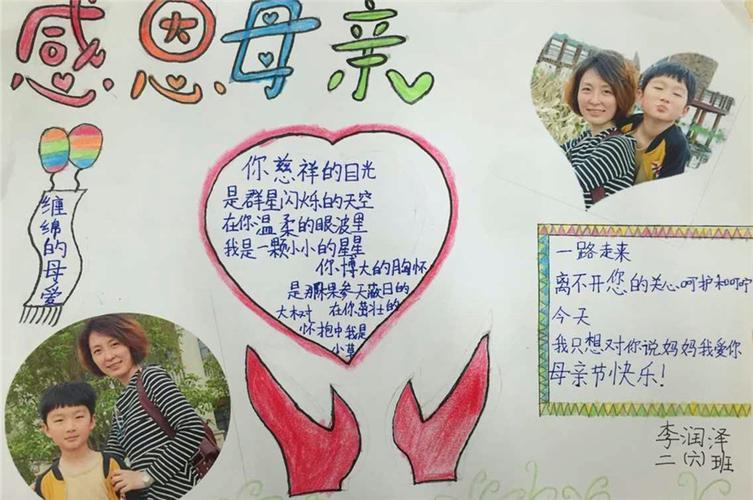 感恩母亲
缠绵的母爱
你慈祥的目光
是群星闪烁的天空
在你温柔的眼波里
我是一颗小小的星星
你博大的胸怀
是那棵参天蔽日的
大树 在你茁壮的
怀抱中我是
小草
一路走来
离不开您的关心呵护和叮咛
今天
我只想对你说妈妈我爱你
母亲节快乐!
李润泽
二(六)班